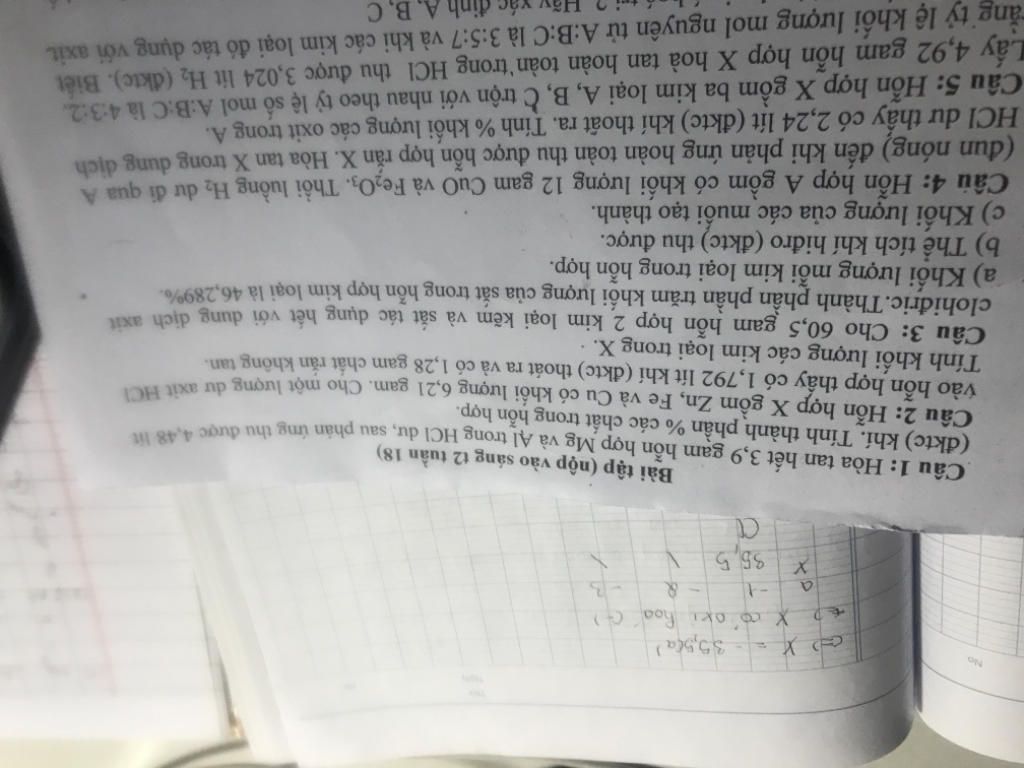 Bài tập (nộp vào sáng t2 tuần 18)
Câu 1: Hòa tan hết 3,9 gam hỗn hợp Mg và Al trong HCl dư, sau phản ứng thu được 4,48 lít
(đktc) khí. Tính thành phần % các chất trong hỗn hợp.
Câu 2: Hỗn hợp X gồm Zn, Fe và Cu có khối lượng 6,21 gam. Cho một lượng dư axit HCl
vào hỗn hợp thấy có 1,792 lít khí (đktc) thoát ra và có 1,28 gam chất rắn không tan.
Tính khối lượng các kim loại trong X.
Câu 3: Cho 60,5 gam hỗn hợp 2 kim loại kẽm và sắt tác dụng hết với dung dịch axit
clohiđric.Thành phần phần trăm khối lượng của sắt trong hỗn hợp kim loại là 46,289%.
a) Khối lượng mỗi kim loại trong hỗn hợp.
b) Thể tích khí hiđro (đktc) thu được.
c) Khối lượng của các muối tạo thành.
Câu 4: Hỗn hợp A gồm có khối lượng 12 gam CuO và Fe₂O₃. Thổi luồng H₂ dư đi qua A
(đun nóng) đến khi phản ứng hoàn toàn thu được hỗn hợp rắn X. Hòa tan X trong dung dịch
HCl dư thấy có 2,24 lít (đktc) khí thoát ra. Tính % khối lượng các oxit trong A.
Câu 5: Hỗn hợp X gồm ba kim loại A, B, C trộn với nhau theo tỷ lệ số mol A:B:C là 4:3:2.
Lấy 4,92 gam hỗn hợp X hoà tan hoàn toàn trong HCl thu được 3,024 lít H₂ (đktc). Biết
rằng tỷ lệ khối lượng mol nguyên tử A:B:C là 3:5:7 và khi các kim loại đó tác dụng với axit
Hãy xác định A, B, C
No
=> X = - 35,5(a)
=> X có oxi hoá (-)
a -1 -2 -3
X 35,5 \ \
Cl